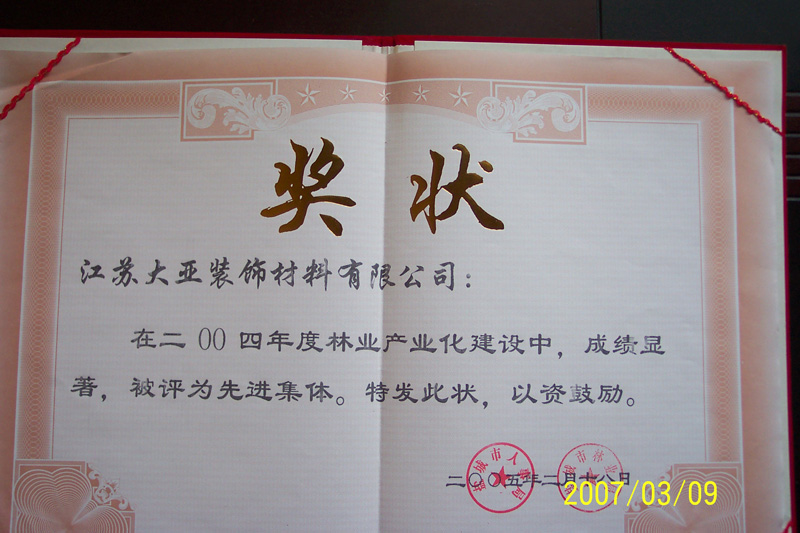 奖状
江苏大亚装饰材料有限公司：
在二00四年度林业产业化建设中，成绩显
著，被评为先进集体。特发此状，以资鼓励。
盐城市人事局
盐城市林业
二〇〇五年二月十八日
2007/03/09